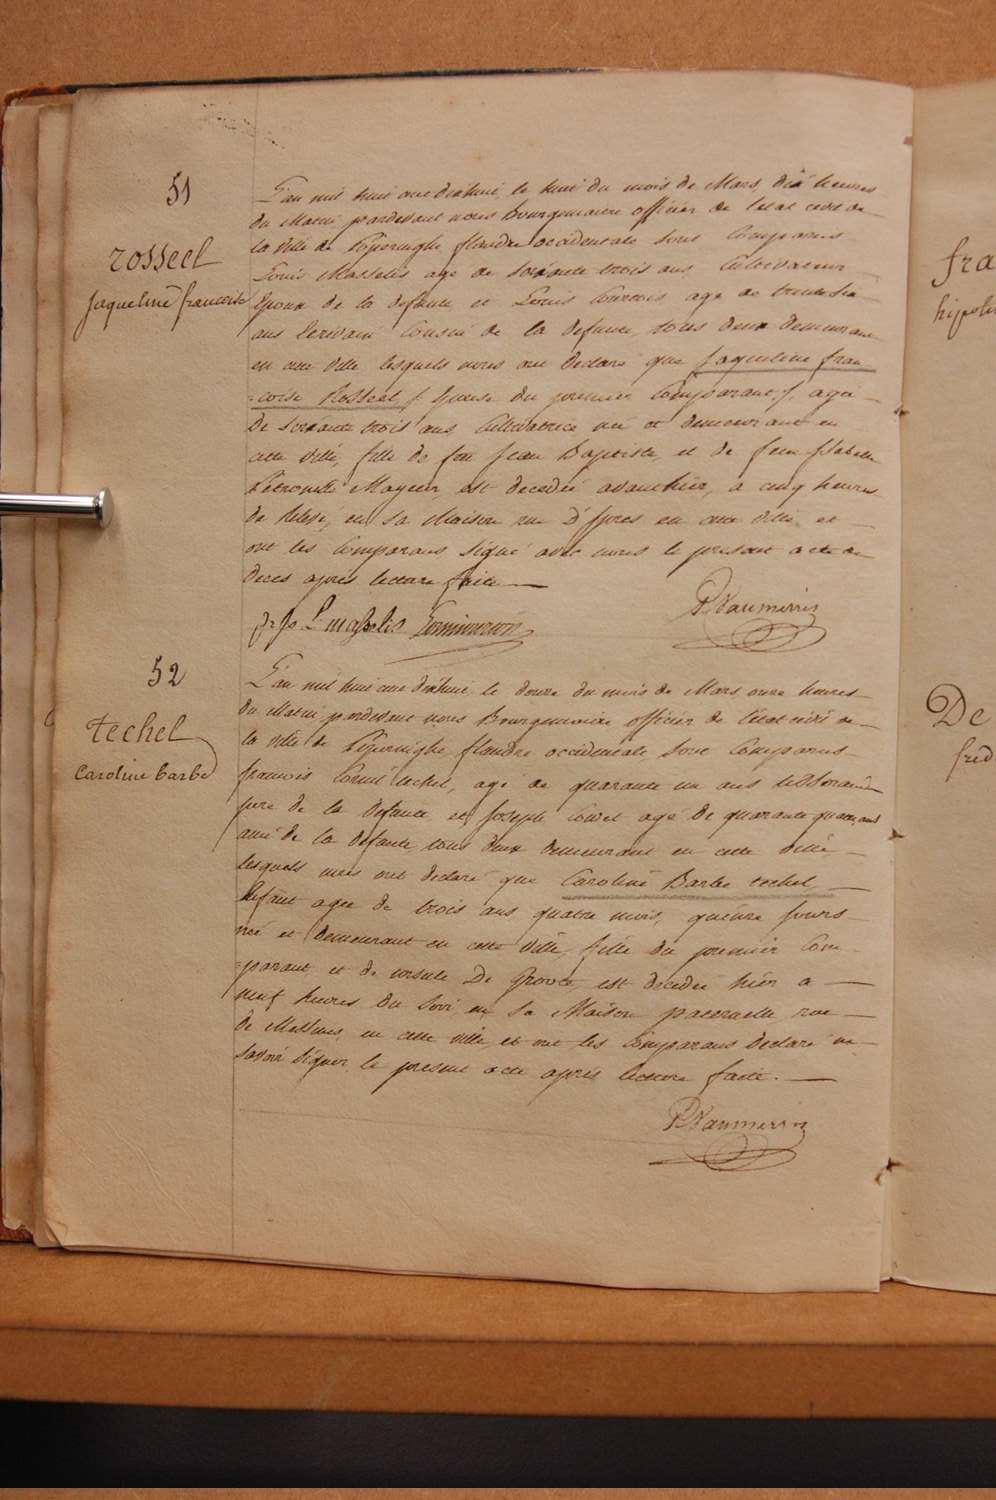 51
rosseel
Jaqueline francoise
L'an mil huit cent dixhuit, le huit du mois de Mars, dix heures
du Matin pardevant nous Bourguemaitre officier de l'etat civil de
la ville de flandre occidentale sont Comparus
Louis Masselis age de soixante trois ans Cultivateur
Epoux de la defunte, et Louis age de
ans Ecrivain Cousin de la defunte, tous deux demeurant
en cette ville lesquels nous ont declaré que Jaqueline fran
=coise Rosseel, (Epouse du premier Comparant), agee
de soixante trois ans Cultivatrice né et demeurant en
cette ville, fille de feu Jean Baptiste, et de feue Isabelle
Petronille Mayeur, est decedée avanthier, a cinq heures
de Relevé, en sa Maison rue D'Ipres en cette ville et
ont les Comparans signé avec nous le present acte de
deces après lecture faite
L masselis
P. Vanmerris
52
techel
Caroline barbe
L'an mil huit cent dixhuit le douze du mois de Mars onze heures
du Matin pardevant nous Bourguemaitre officier de l'etat civil de
la ville de flandre occidentale, sont Comparus
francois techel, agé de quarante un ans
pere de la defunte, et Joseph agé de quarante quatre ans
ami de la defunte, tous deux demeurant en cette ville
lesquels nous ont declaré que Caroline Barbe techel,
agee de trois ans quatre mois, quinze jours
née et demeurant en cette ville, fille du premier Com
=parant et de ursule De est decedée hier a
neuf heures du soir, en sa Maison paternelle, rue
de en cette ville, et ont les Comparans declaré ne
savoir signer le present acte après lecture faite.
P. Vanmerris
fra
De
fred